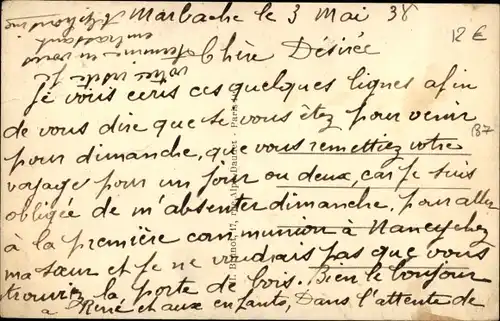 Marbache le 3 Mai 38
12 €
Chère Désirée
Je vous ecris ces quelques lignes afin
de vous dire que se vous êtez pour venir
B7
pour dimanche, que vous remettiez votre
voyage pour un jour ou deux, car je suis
obligée de m'absenter dimanche, pour aller
à la première communion à Nancy chez
ma sœur et je ne voudrais pas que vous
trouviez la porte de bois. Bien le bonjour
a René et aux enfants, Dans l'attente de
votre visite je
termine en vous
embrassant